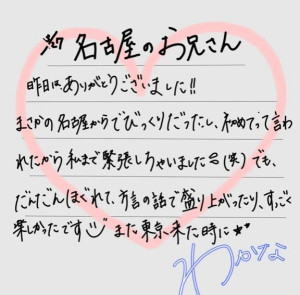 名古屋のお兄さん
昨日は、ありがとうございました!!
まさかの名古屋からでびっくりだったし、初めてって言わ
れたから私まで緊張しちゃいました(笑)でも、
だんだんほぐれて、方言の話で盛り上がったり、すっごく
楽しかったです また東京来た時に
わかな